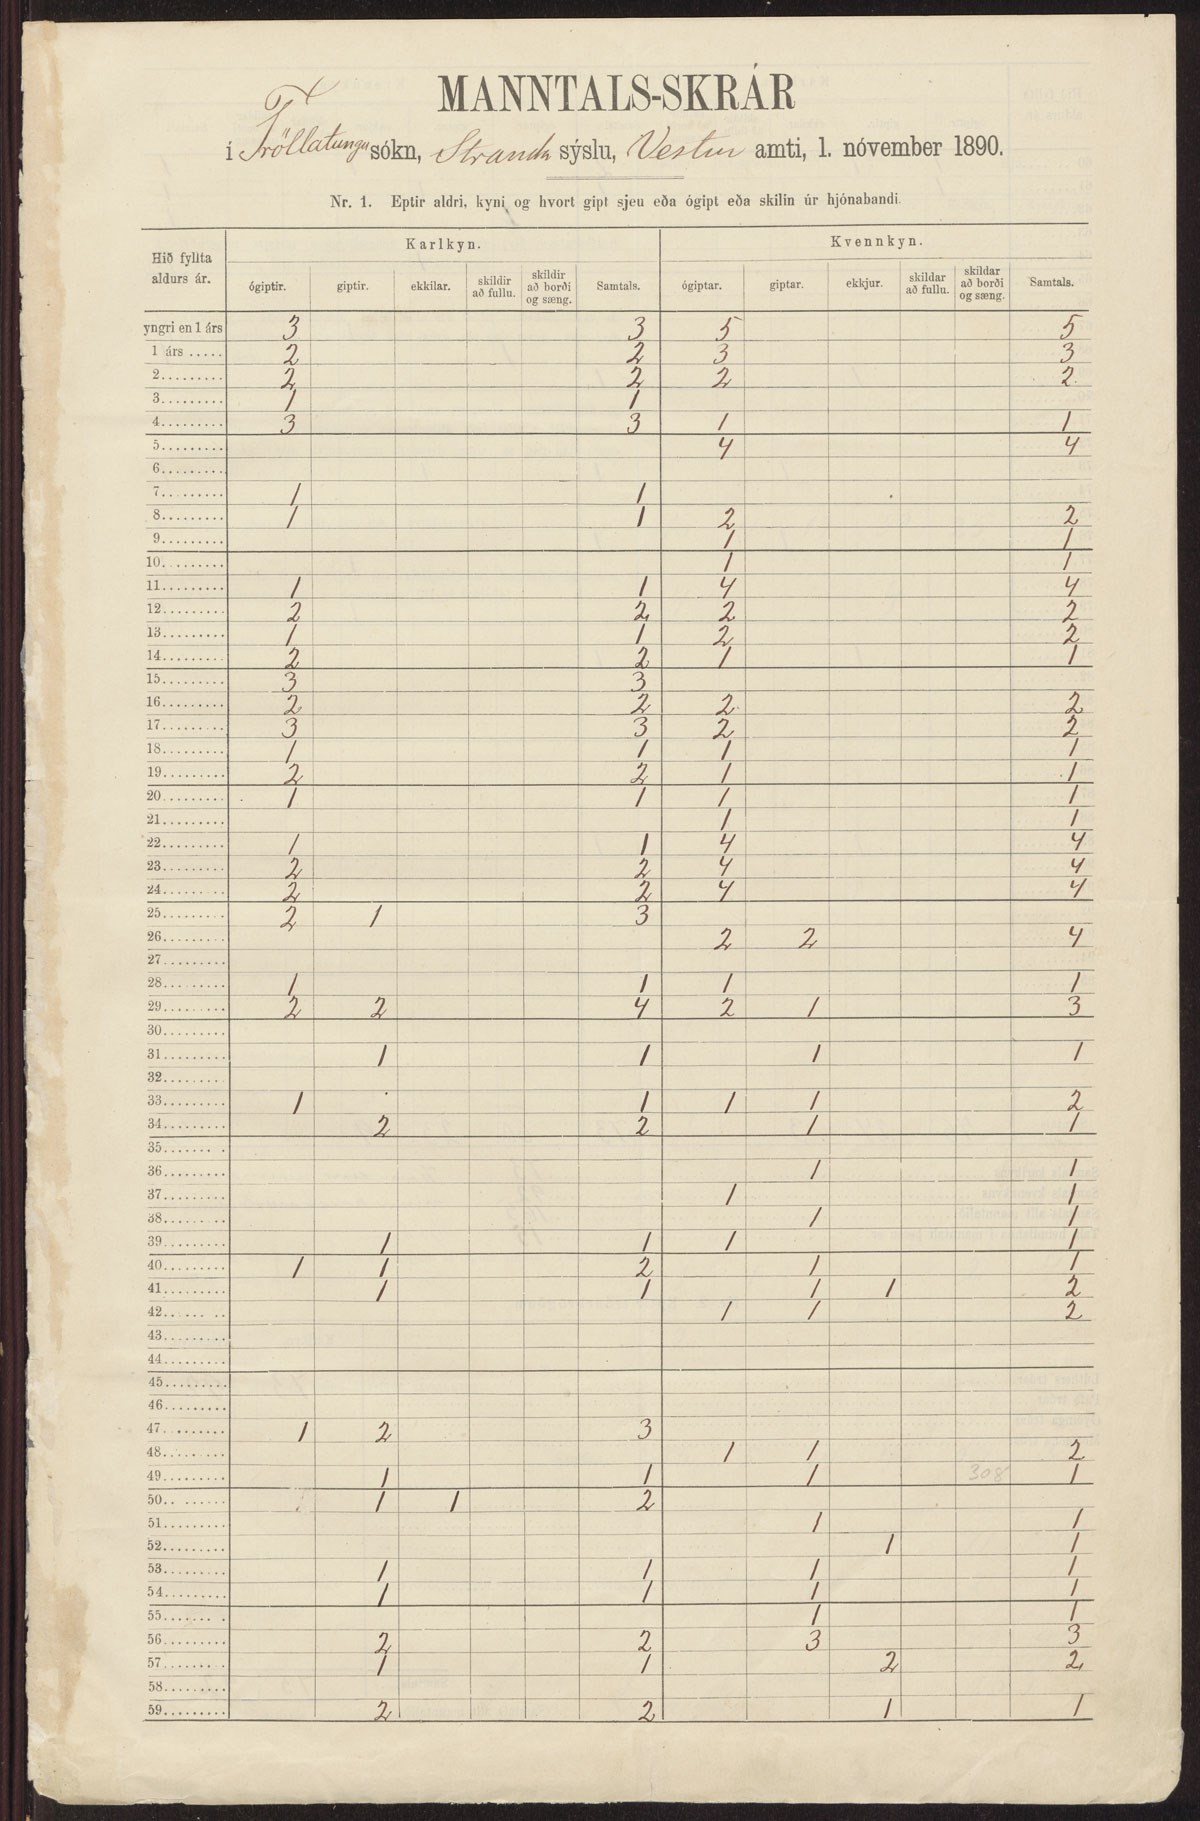 MANNTALS-SKRÁR
í Tröllatungu sókn, Stranda sýslu, Vestur amti, 1. nóvember 1890.
Nr. 1. Eptir aldri, kyni og hvort gipt sjeu eða ógipt eða skilin úr hjónabandi.
Hið fyllta aldurs ár. Karlkyn. Kvennkyn.
ógiptir. giptir. ekkilar. skildir að fullu. skildir að borði og sæng. Samtals. ógiptar. giptar. ekkjur. skildar að fullu. skildar að borði og sæng. Samtals.
yngri en 1 árs 3 3 5 5
1 árs ..... 2 2 3 3
2......... 2 2 2 2
3......... 1 1
4......... 3 3 1 1
5......... 4 4
6.........
7......... 1 1
8......... 1 1 2 2
9......... 1 1
10......... 1 1
11......... 1 1 4 4
12......... 2 2 2 2
13......... 1 1 2 2
14......... 2 2 1 1
15......... 3 3
16......... 2 2 2 2
17......... 3 3 2 2
18......... 1 1 1 1
19......... 2 2 1 1
20......... 1 1 1 1
21......... 1 1
22......... 1 1 4 4
23......... 2 2 4 4
24......... 2 2 4 4
25......... 2 1 3
26......... 2 2 4
27.........
28......... 1 1 1 1
29......... 2 2 4 2 1 3
30.........
31......... 1 1 1 1
32.........
33......... 1 1 1 1 2
34......... 2 2 1 1
35.........
36......... 1 1
37......... 1 1
38......... 1 1
39......... 1 1 1 1
40......... 1 1 2 1 1
41......... 1 1 1 1 2
42......... 1 1 2
43.........
44.........
45.........
46.........
47......... 1 2 3
48......... 1 1 2
49......... 1 1 1 308 1
50......... 1 1 2
51......... 1 1
52......... 1 1
53......... 1 1 1 1
54......... 1 1 1 1
55......... 1 1
56......... 2 2 3 3
57......... 1 1 2 2
58.........
59......... 2 2 1 1